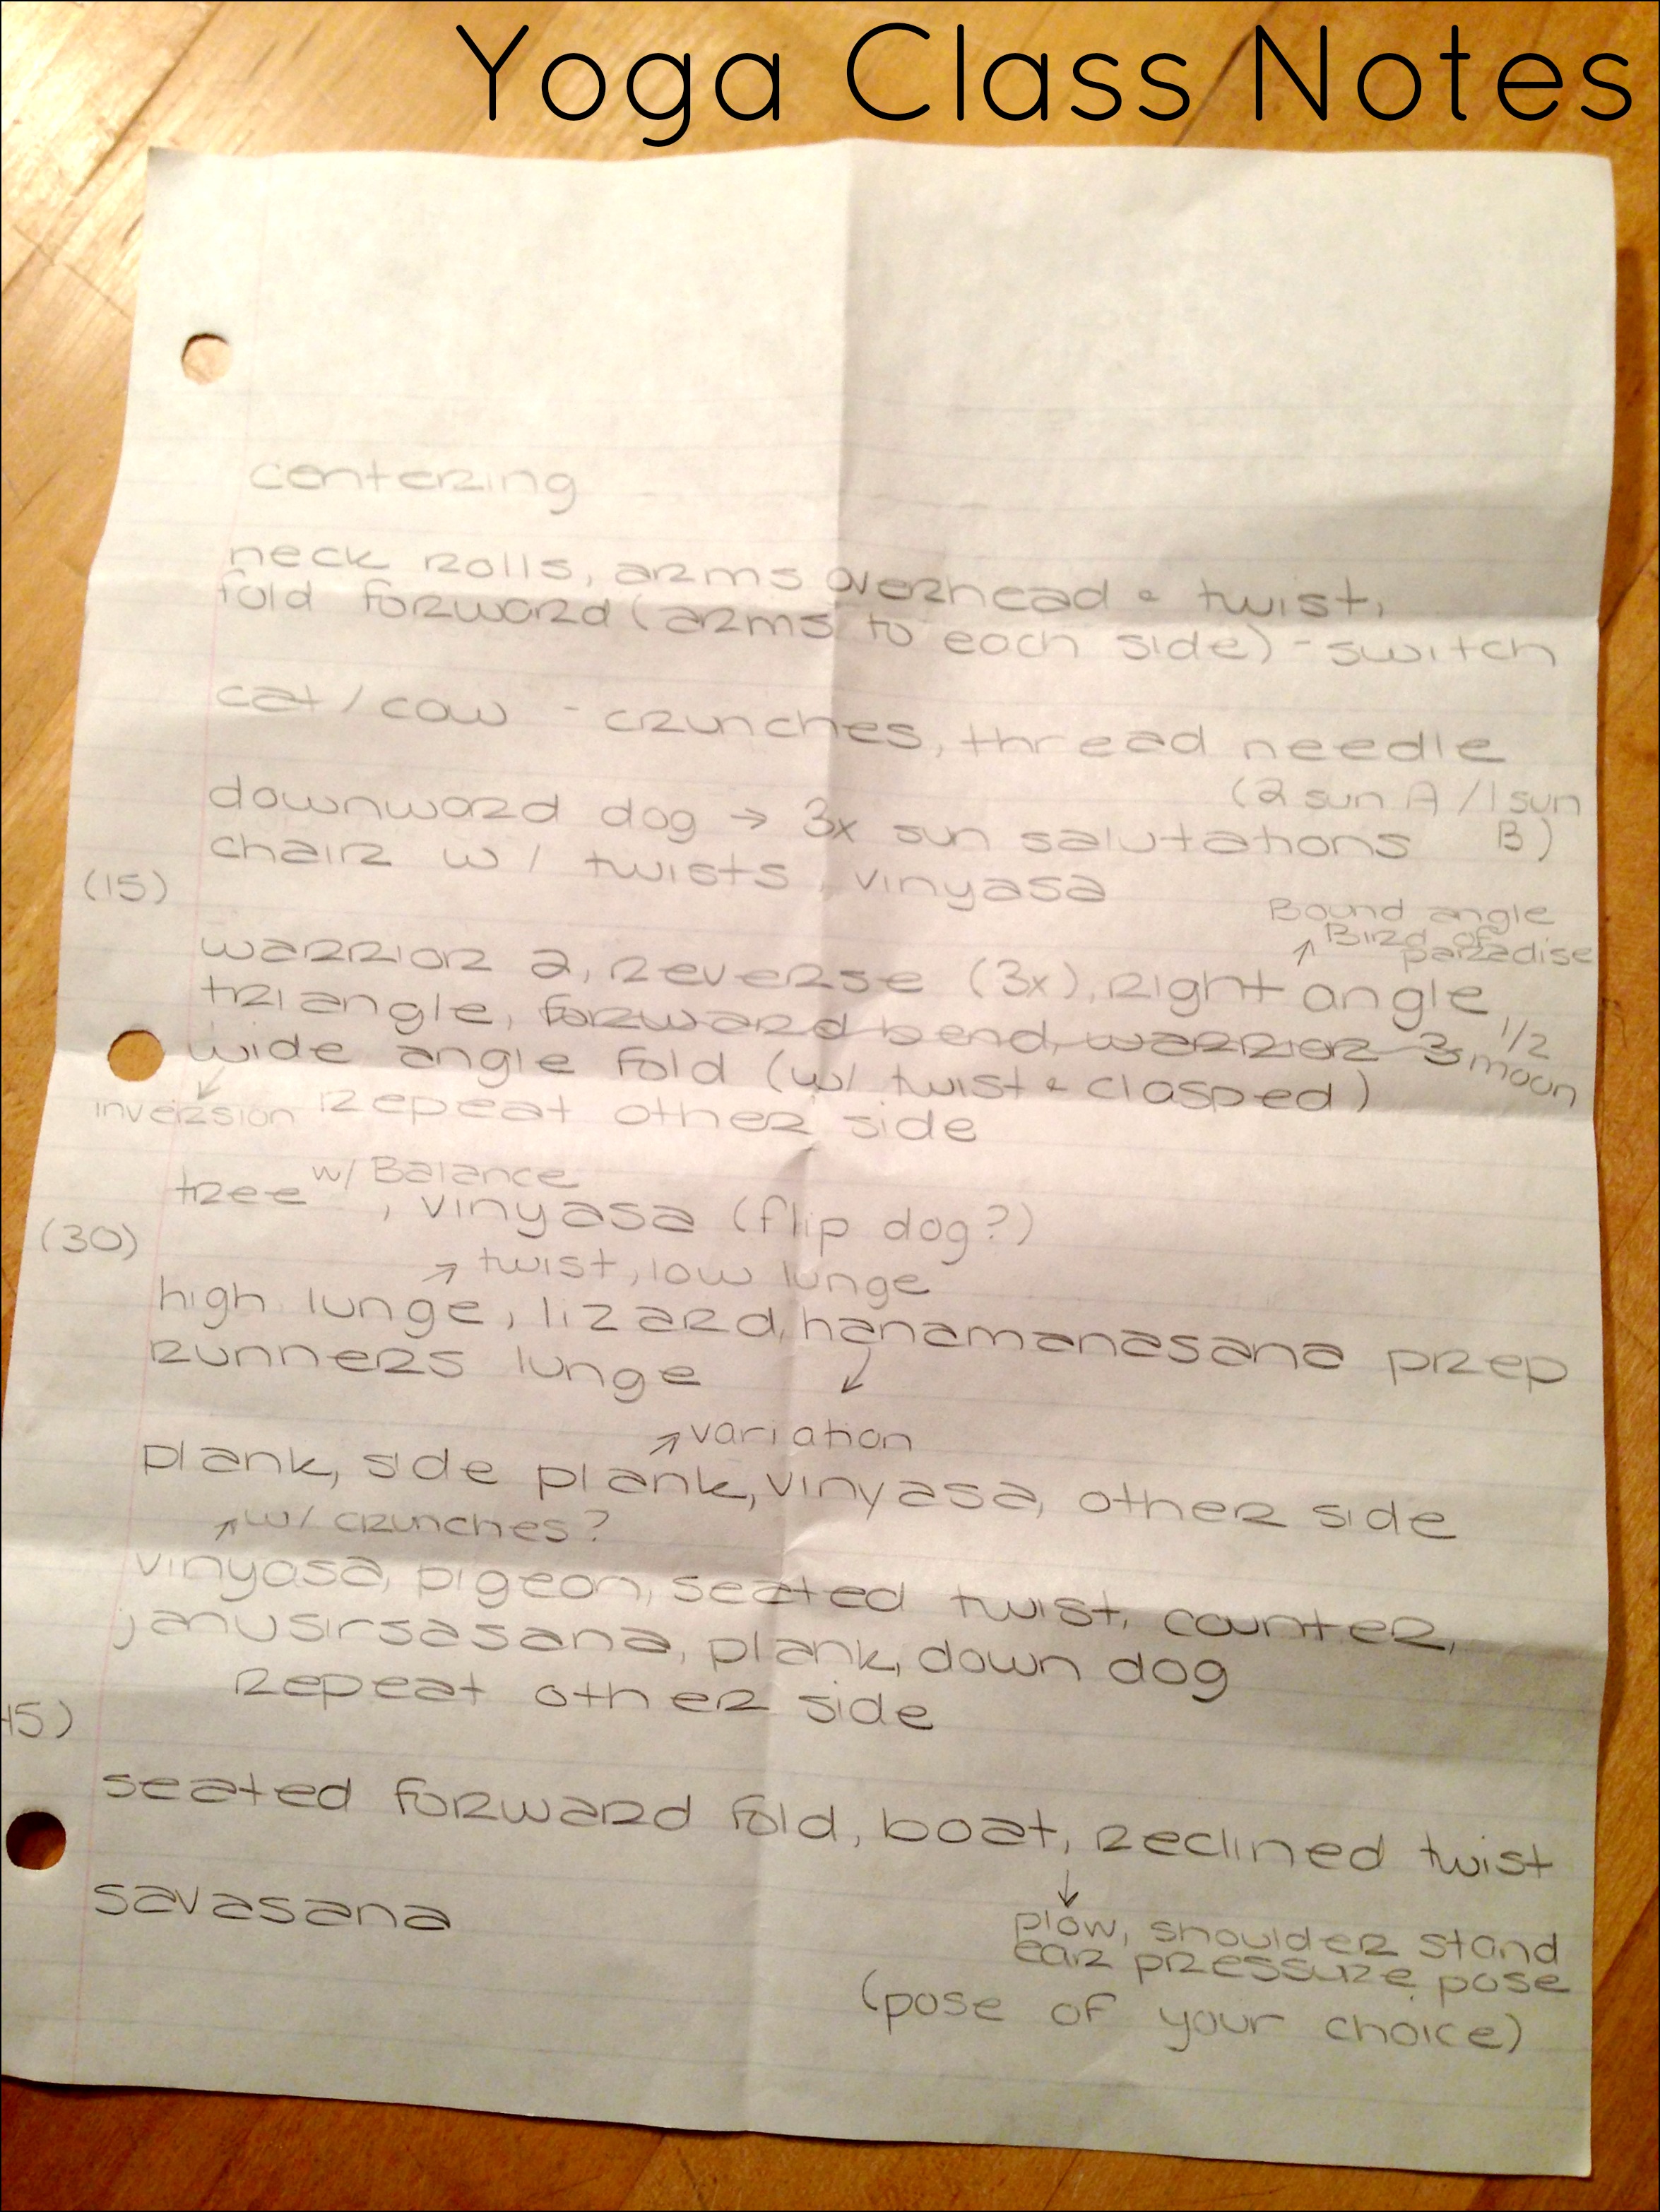 Yoga Class Notes
centering
neck rolls, arms overhead & twist,
fold forward (arms to each side) - switch
cat / cow - crunches, thread needle
(2 sun A / 1 sun B)
downward dog → 3x sun salutations
chair w/ twists, vinyasa
(15)
Bound angle
Bird of paradise
warrior 2, reverse (3x), right angle,
triangle, forward bend, warrior 3 1/2 moon
wide angle fold (w/ twist & clasped)
inversion Repeat other side
w/ Balance
tree , vinyasa (flip dog?)
(30)
↗ twist, low lunge
high lunge, lizard, hanamanasana prep
runners lunge
↗ variation
plank, side plank, vinyasa, other side
↗ w/ crunches?
vinyasa, pigeon, seated twist, counter,
janusirsasana, plank, down dog
Repeat other side
45)
seated forward fold, boat, reclined twist
savasana
plow, shoulder stand
ear pressure pose
(pose of your choice)